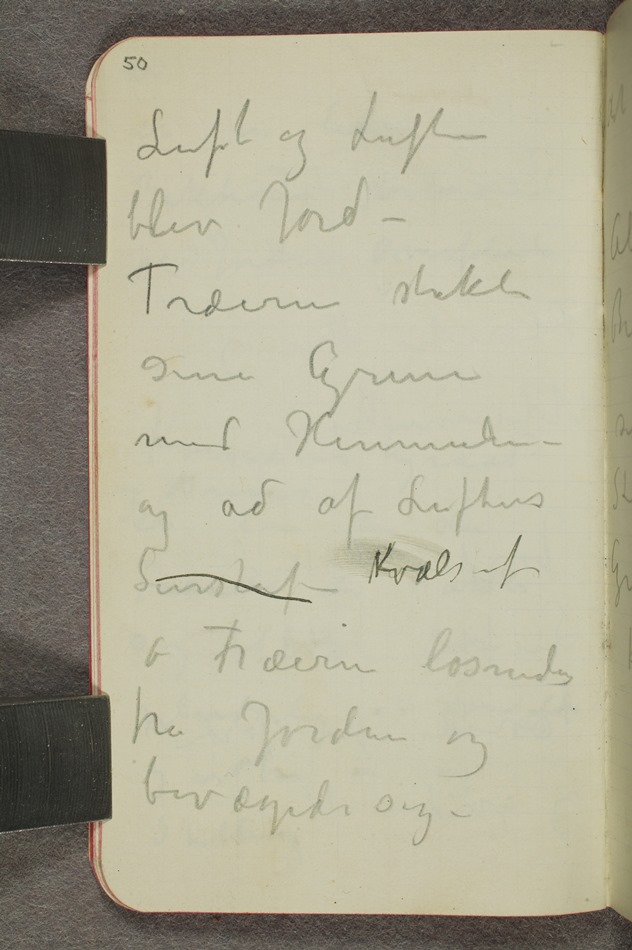 50
Luft og Luften
blev Jord –
Træerne strakte
sine Grene
mod Himmelen –
og åd af Luftens
Kvælstof
o Træerne løsnedes
fra Jorden og
bevægede sig –